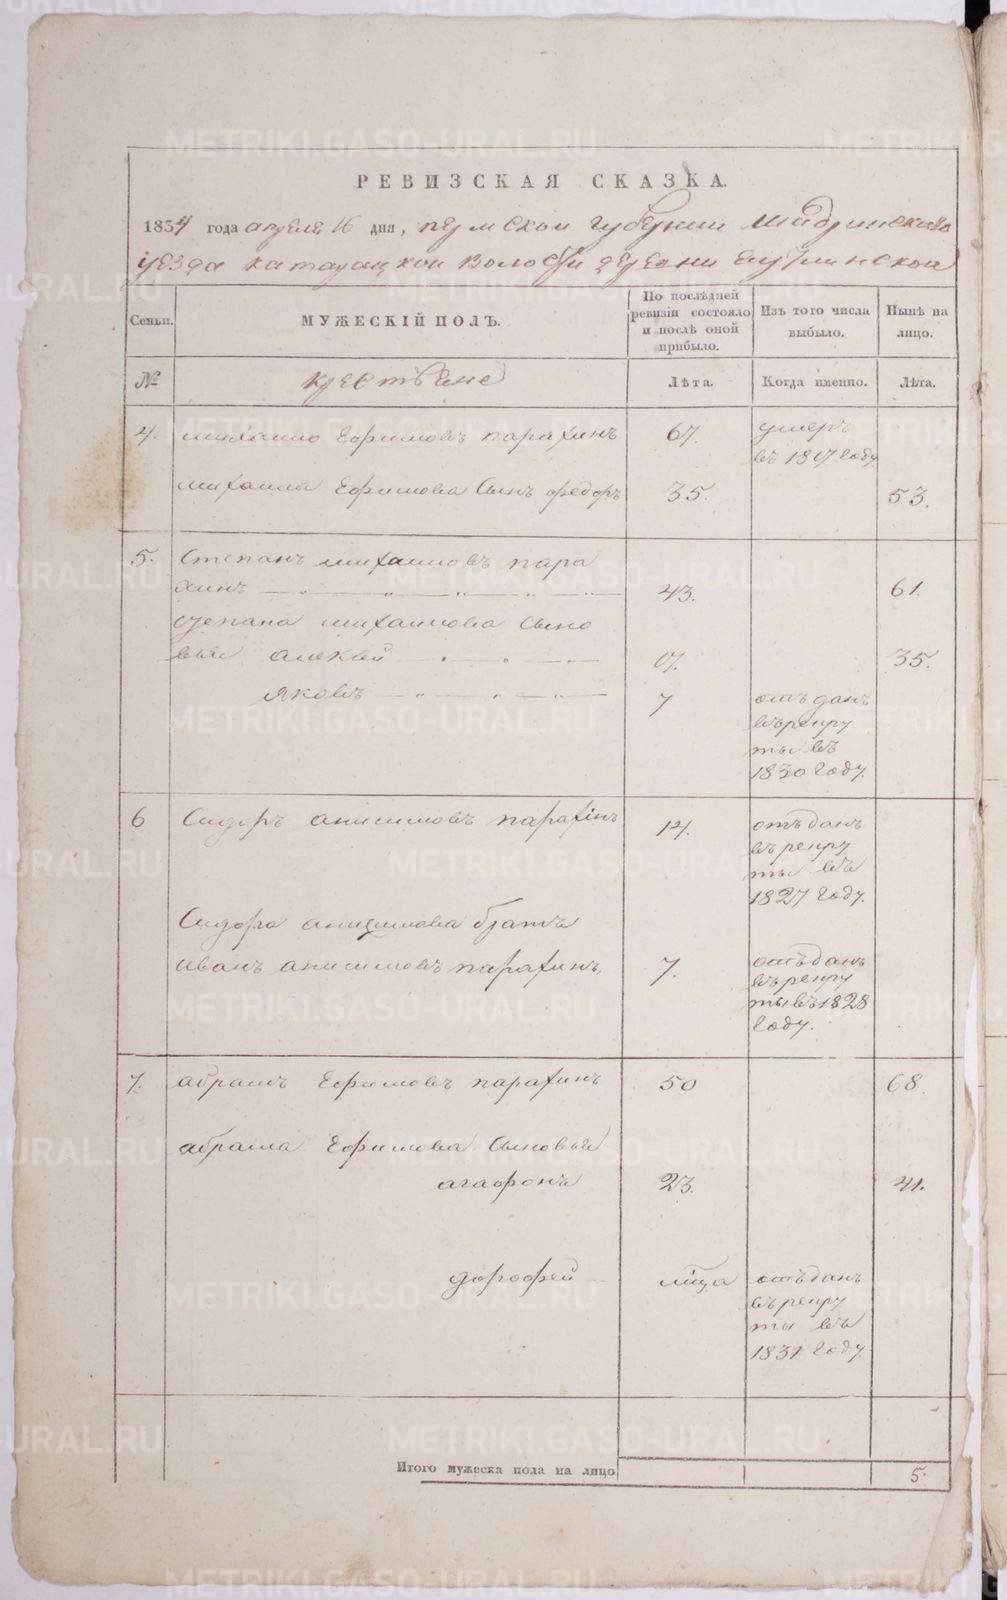 РЕВИЗСКАЯ СКАЗКА.
1834 года апреля 16 дня, пермской губернии Шадринскаго
уезда катайской волости деревни
Семьи. МУЖЕСКІЙ ПОЛЪ. По послѣдней ревизіи состояло и послѣ оной прибыло. Изъ того числа выбыло. Нынѣ на лицо.
№ крестьяне Лѣта. Когда именно. Лѣта.
4. михаило Ефимовъ парахинъ 67. умеръ
въ 1817 году
михаила Ефимова Сынъ федоръ 35. 53.
5. Степанъ михаиловъ пара
хинъ 43. 61.
степана михаилова Сыно
вья алексей 17. 35.
яковъ 7 отъданъ
въ рекру
ты въ
1830 году.
6 Сидоръ анисимовъ парахінъ 14. отъданъ
въ рекру
ты въ
1827 году.
Сидора анисимова братъ
иванъ анисимовъ парахинъ. 7. отъданъ
въ рекру
ты въ 1828
году.
7. абрамъ Ефимовъ парахинъ 50 68
абрама Ефимова Сыновья
агафонъ 23. 41.
дорофей отъданъ
въ рекру
ты въ
1831 году.
Итого мужеска пола на лицо 5.
METRIKI.GASO-URAL.RU